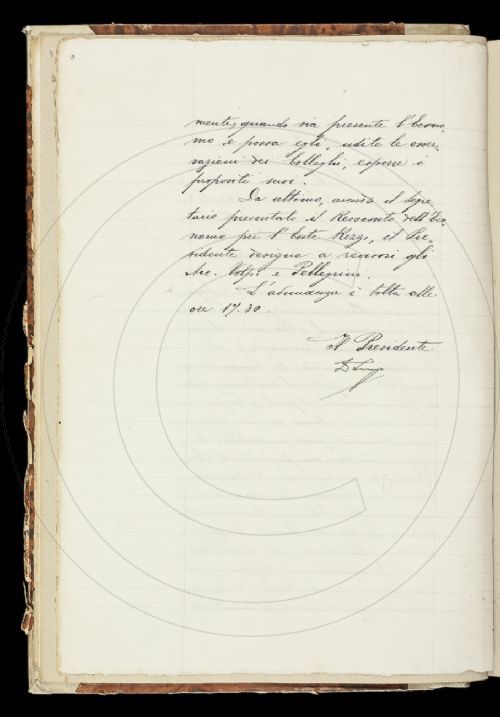 mente, quando sia presente l'Econo-
mo e possa egli, udite le osser-
vazioni dei Colleghi, esporre i
propositi suoi.
Da ultimo, avendo il Segre-
tario presentato il Resoconto dell'Eco-
nomo per l'Ente Rezzo, il Pre-
sidente designa a revisori gli
Acc. Volpi e Pellegrini.
L'adunanza è tolta alle
ore 17.30.
Il Presidente